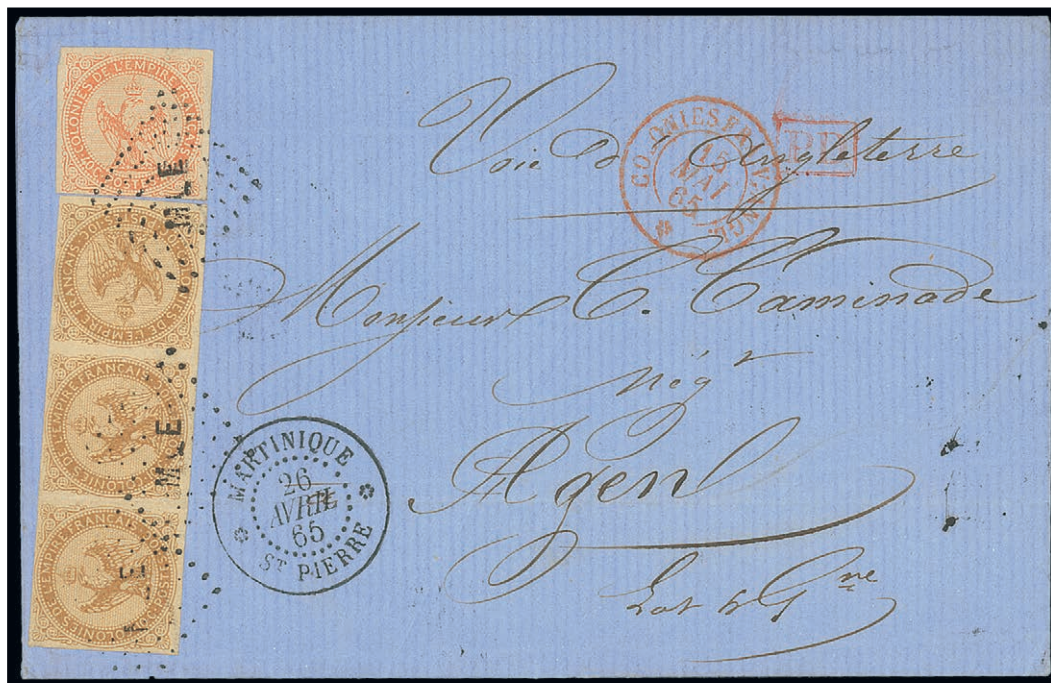 COLONIES DE L'EMPIRE FRANÇAIS
MLE
MLE
MLE
Voie d'Angleterre
PD
15
MAI
65
Monsieur C. Caminade
négt
Agen
Lot & Gne
MARTINIQUE
26
AVRIL
65
ST PIERRE